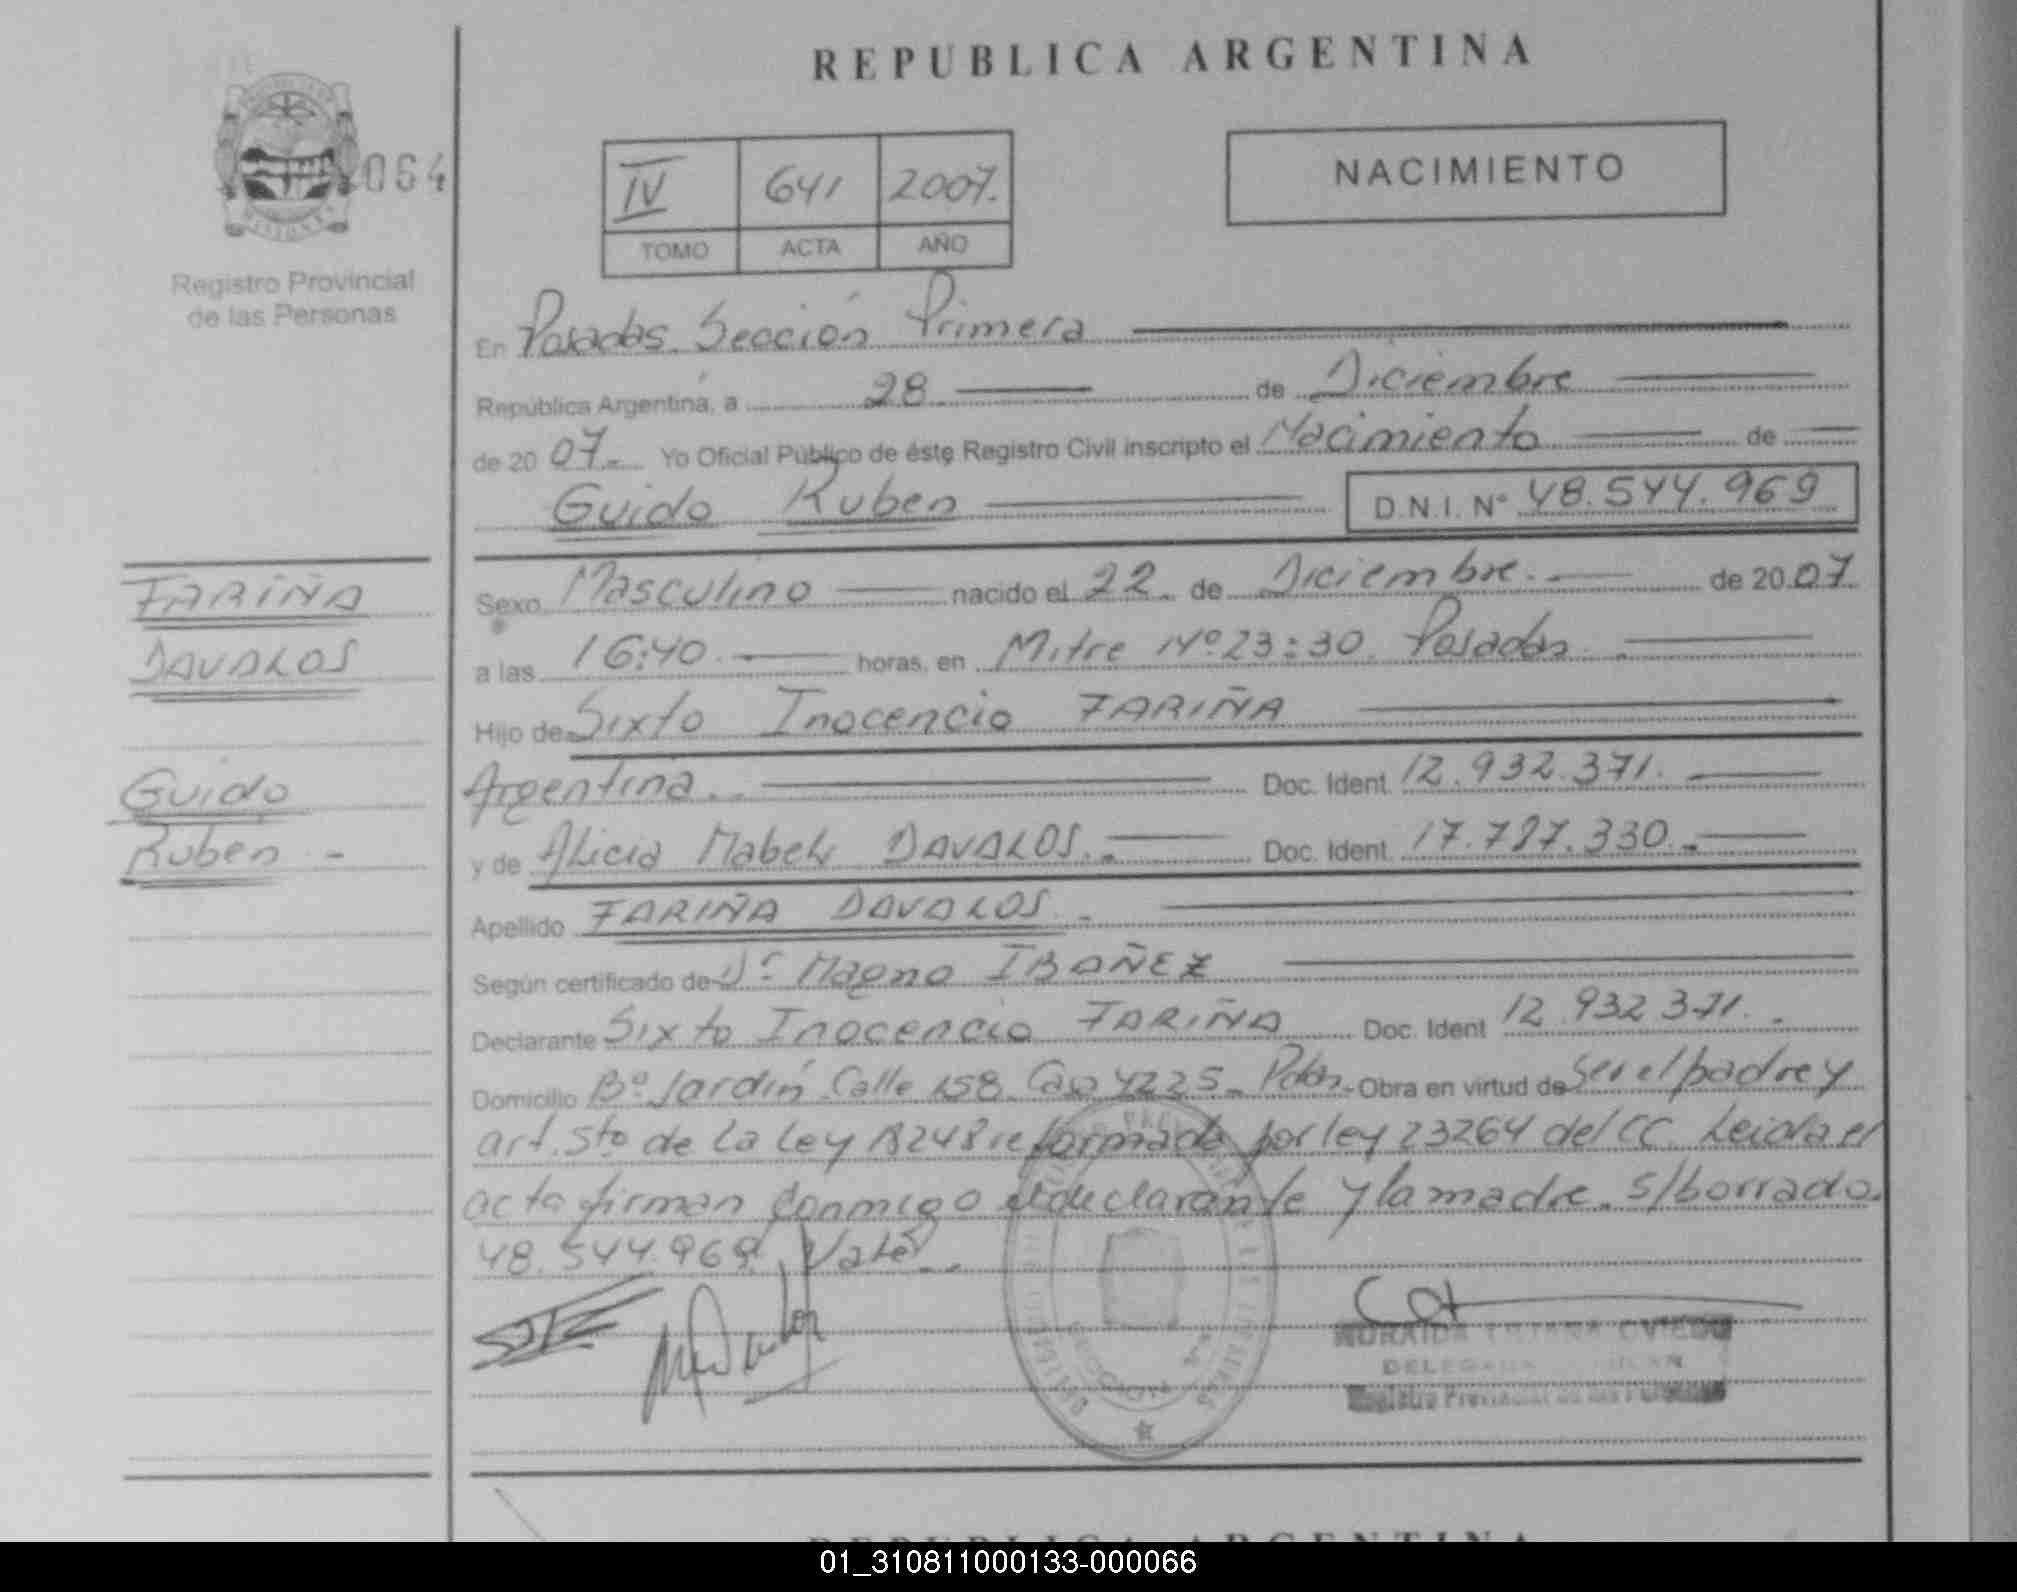 REPUBLICA ARGENTINA
064
IV 641 2007.
TOMO ACTA AÑO
NACIMIENTO
Registro Provincial
de las Personas
En Posadas Sección Primera
República Argentina, a 28 de Diciembre
de 20 07.- Yo Oficial Público de éste Registro Civil inscripto el Nacimiento de
Guido Ruben D.N.I. Nº 48.544.969
FARIÑA
DAVALOS
Guido
Ruben -
Sexo Masculino nacido el 22 de Diciembre.- de 20 07.
a las 16:40. horas, en Mitre Nº 23:30 Posadas
Hijo de Sixto Inocencio FARIÑA
Argentina.- Doc. Ident. 12.932.371.
y de Alicia Mabel DAVALOS.- Doc. Ident. 17.787.330.-
Apellido FARIÑA DAVALOS.-
Según certificado de Dr Magno IBAÑEZ
Declarante Sixto Inocencio FARIÑA Doc. Ident 12.932.371.-
Domicilio Bº Jardín Calle 158 Casa 4225.- Pdas.- Obra en virtud de ser el padre y
art. 5to de la Ley 18248 reformada por ley 23264 del CC. Leida el
acta firman conmigo el declarante y la madre. S/borrado.
48.544.969. Vale.-
Registro Provincial de las Personas
REPUBLICA ARGENTINA
01_310811000133-000066